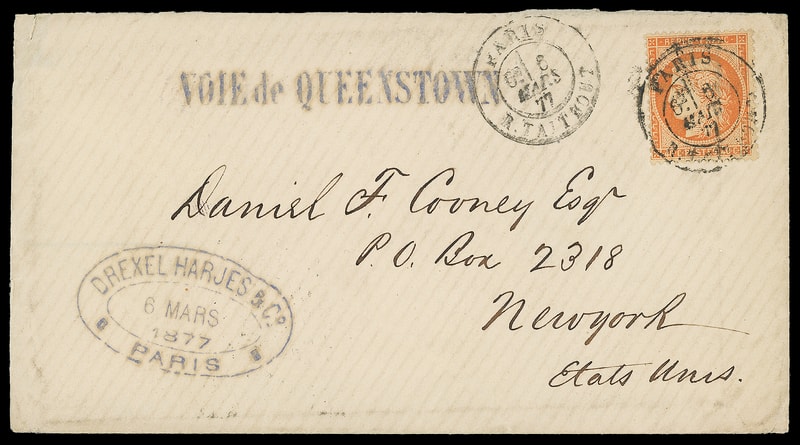 VOIE de QUEENSTOWN
PARIS
6
MARS
77
R. TAITBOUT
PARIS
6
MARS
77
Daniel F. Cooney Esqr
P.O. Box 2318
Newyork
Etats Unis.
DREXEL HARJES & Co
6 MARS
1877
PARIS